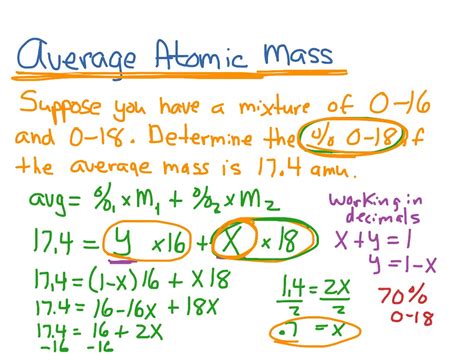 Average Atomic Mass
Suppose you have a mixture of O-16
and O-18. Determine the % O-18 if
the average mass is 17.4 amu.
avg = %₁ × M₁ + %₂ × M₂
17.4 = y × 16 + X × 18
17.4 = (1-X)16 + X18
17.4 = 16 - 16X + 18X
17.4 = 16 + 2X
-16 -16
working in
decimals
X + y = 1
y = 1 - X
1.4 = 2X
2 2
.7 = X
70%
O-18